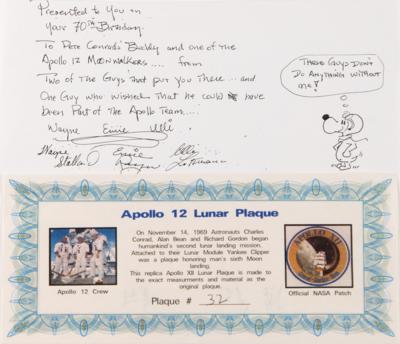 Presented to You on
Your 70th Birthday
To Pete Conrad's Buddy and one of the
Apollo 12 Moonwalkers.... from
Two of the Guys that put you There... and
One Guy who wished that he could have
been Part of the Apollo Team....
Wayne Ernie Ulli
Wayne Ernie
THESE GUYS DON'T
DO ANYTHING WITHOUT
ME!
Apollo 12 Lunar Plaque
On November 14, 1969 Astronauts Charles
Conrad, Alan Bean and Richard Gordon began
humankind's second lunar landing mission.
Attached to their Lunar Module Yankee Clipper
was a plaque honoring man's sixth Moon
landing.
This replica Apollo XII Lunar Plaque is made to
the exact measurments and material as the
original plaque.
Apollo 12 Crew
Plaque # 32
APOLLO XII
Official NASA Patch